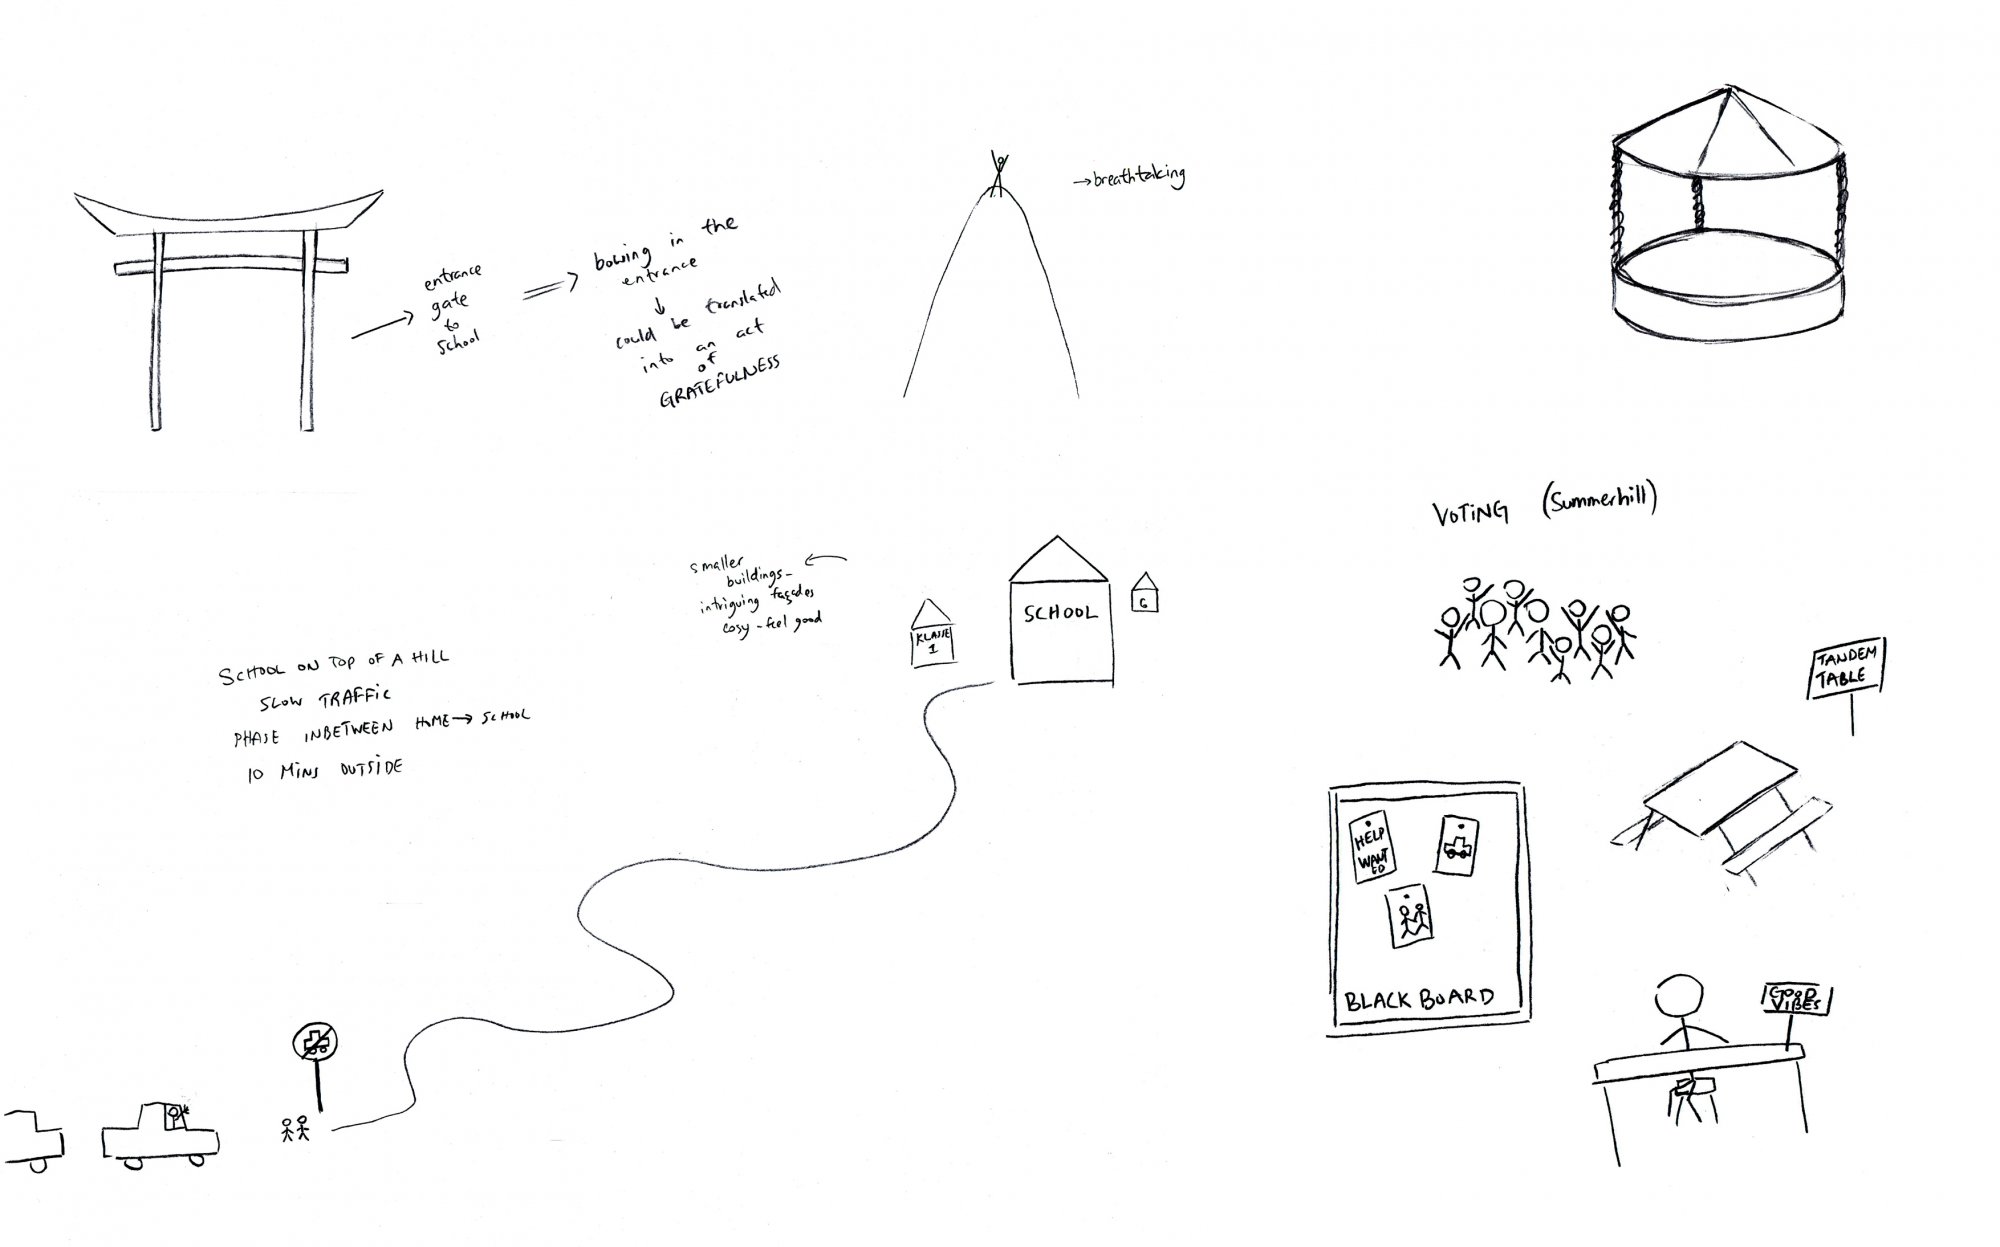 entrance
gate
to
school
bowing in the
entrance
could be translated
into an act
of
GRATEFULNESS
breathtaking
VOTING (Summerhill)
smaller
buildings-
intriguing façades
cosy-feel good
KLASSE
1
SCHOOL
6
SCHOOL ON TOP OF A HILL
SLOW TRAFFIC
PHASE INBETWEEN HOME → SCHOOL
10 MINS OUTSIDE
TANDEM
TABLE
HELP
WANT
ED
BLACKBOARD
GOOD
VIBES